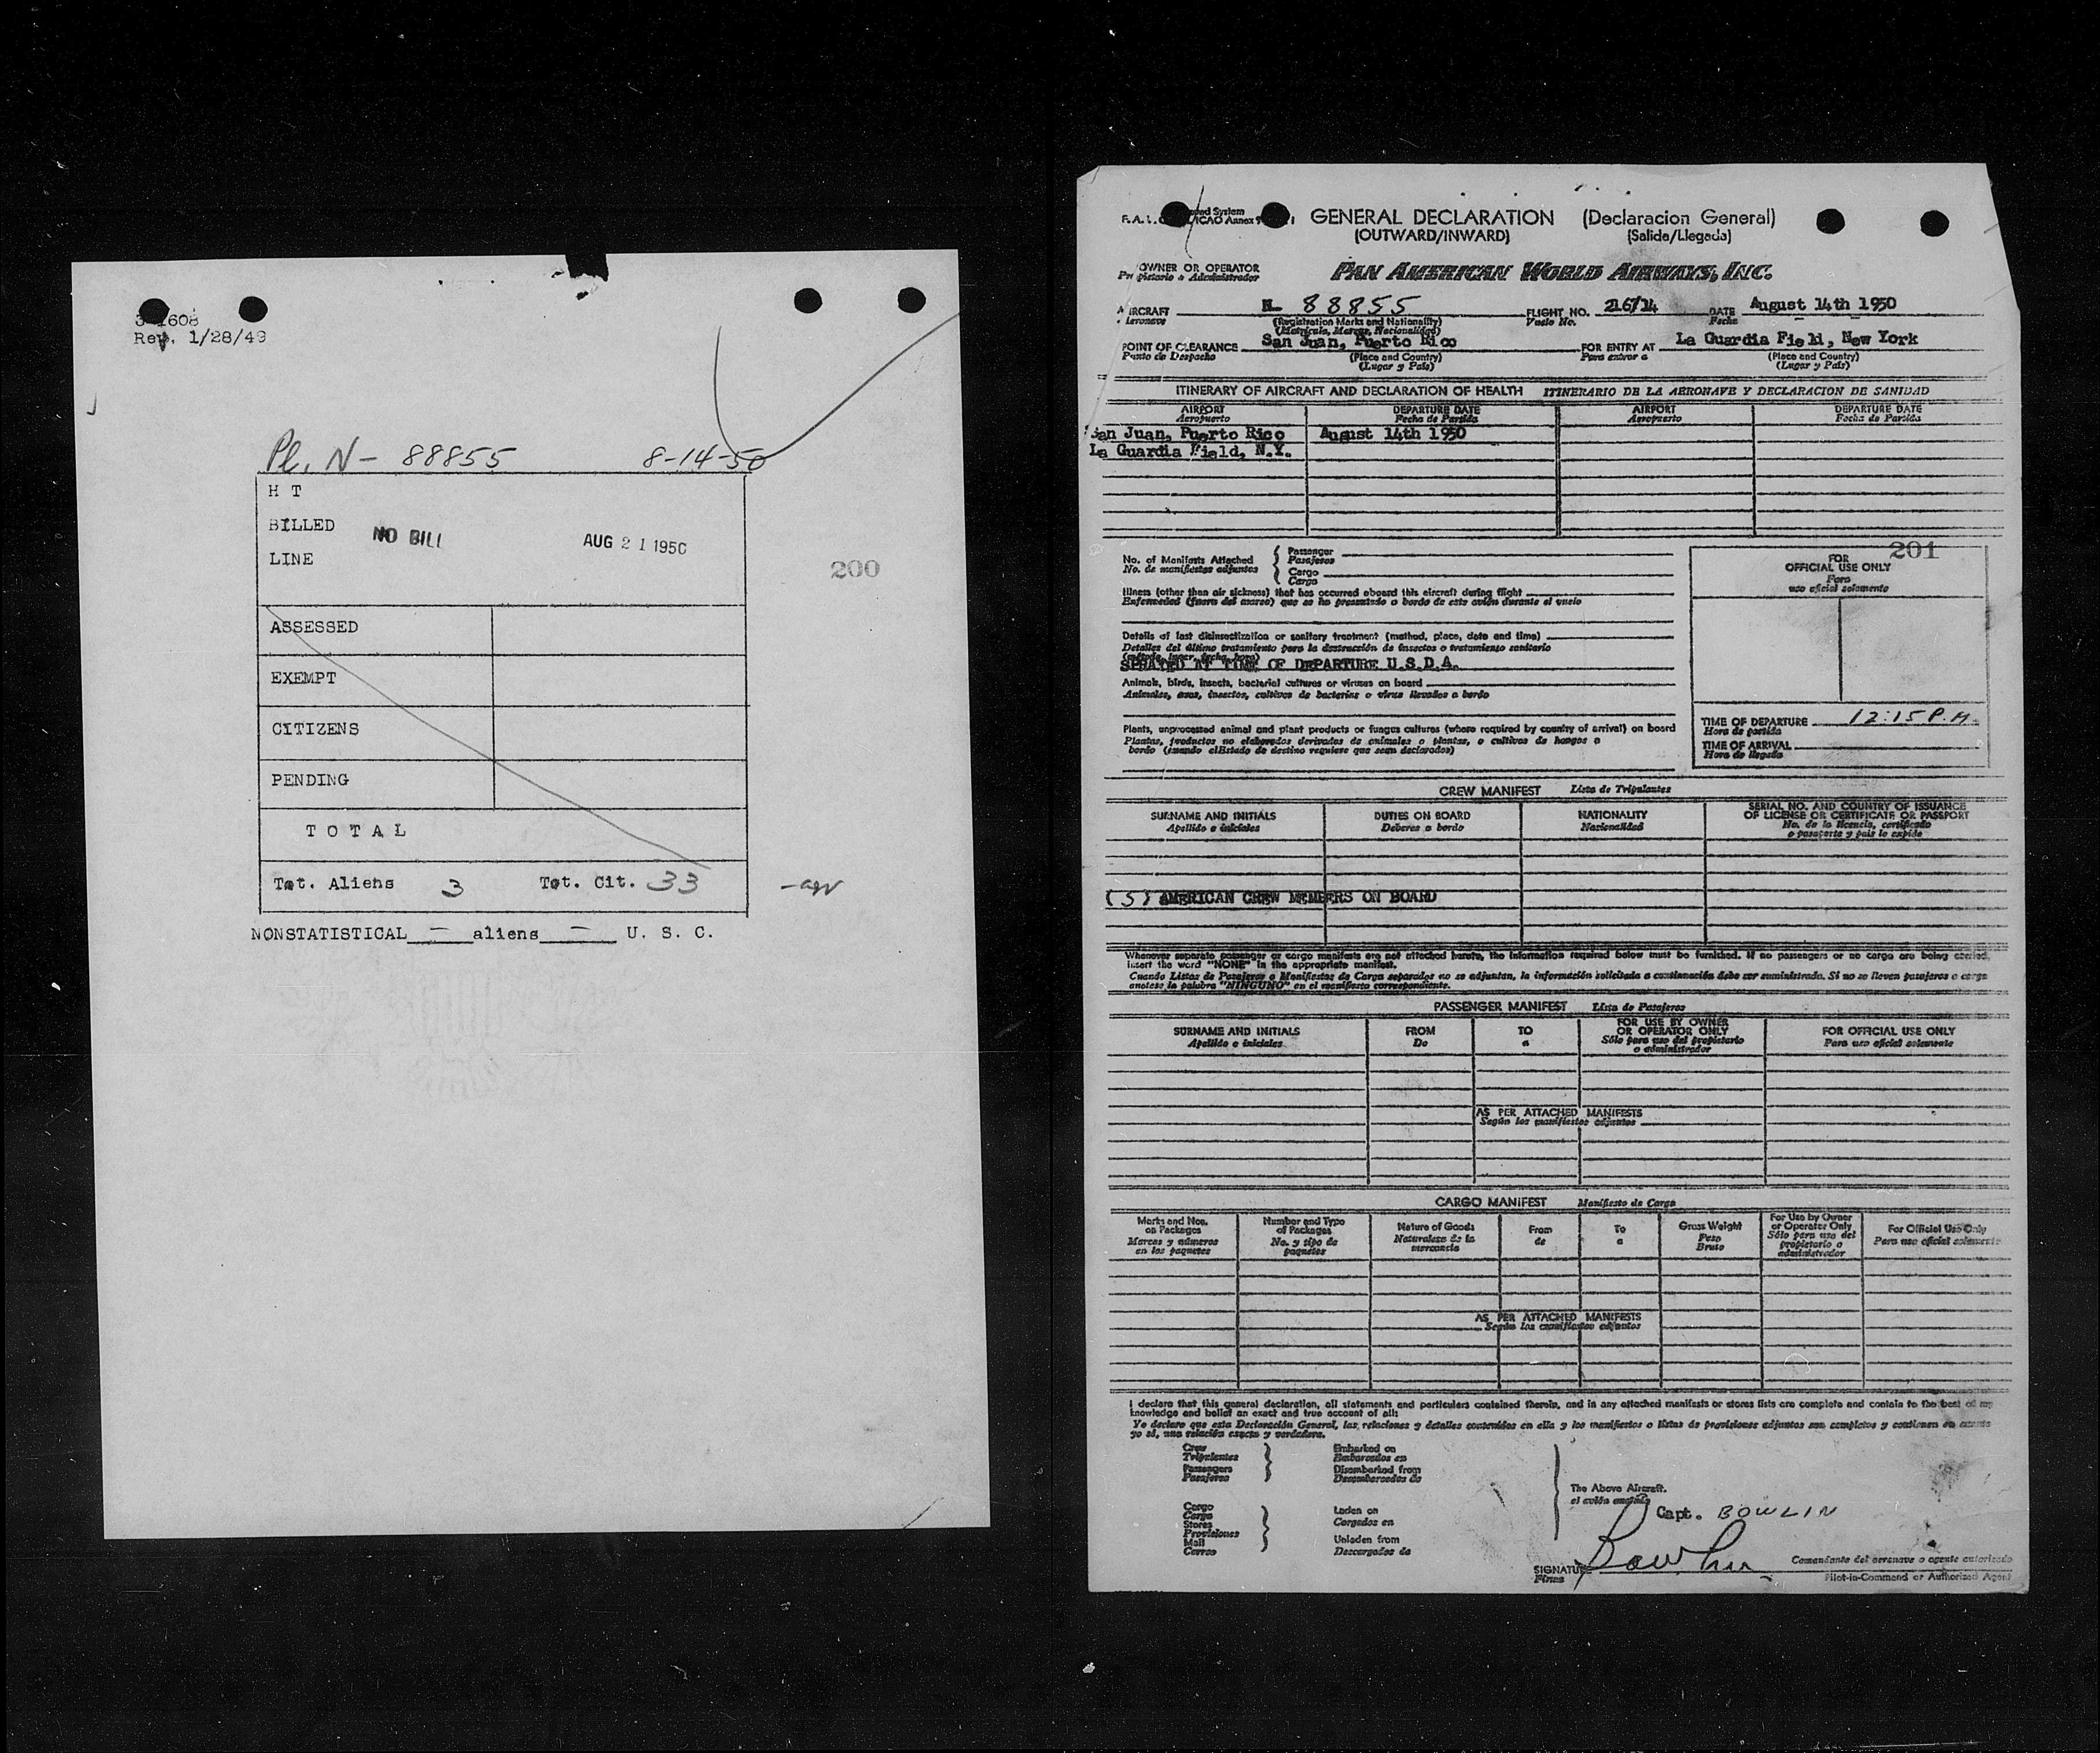 Rev. 1/28/49
Pl. N- 88855 8-14-50
H T
BILLED NO BILL AUG 21 1950
LINE
200
ASSESSED
EXEMPT
CITIZENS
PENDING
T O T A L
Tot. Aliens 3 Tot. Cit. 33
NONSTATISTICAL — aliens — U. S. C.
GENERAL DECLARATION (Declaracion General)
(OUTWARD/INWARD) (Salida/Llegada)
OWNER OR OPERATOR PAN AMERICAN WORLD AIRWAYS, INC.
Propietario o Administrador
AIRCRAFT N- 88855 FLIGHT NO. 216/14 DATE August 14th 1950
Aeronave (Registration Marks and Nationality) Vuelo No. Fecha
(Matricula, Marcas, Nacionalidad)
POINT OF CLEARANCE San Juan, Puerto Rico FOR ENTRY AT La Guardia Field, New York
Punto de Despacho (Place and Country) Para entrar a (Place and Country)
(Lugar y País) (Lugar y País)
ITINERARY OF AIRCRAFT AND DECLARATION OF HEALTH ITINERARIO DE LA AERONAVE Y DECLARACION DE SANIDAD
AIRPORT DEPARTURE DATE AIRPORT DEPARTURE DATE
Aeropuerto Fecha de Partida Aeropuerto Fecha de Partida
San Juan, Puerto Rico August 14th 1950
La Guardia Field, N.Y.
201
No. of Manifests Attached Passenger
No. de manifiestos adjuntos Pasajeros
Cargo
Carga
FOR
OFFICIAL USE ONLY
Para
uso oficial solamente
Illness (other than air sickness) that has occurred aboard this aircraft during flight
Enfermedad (fuera del mareo) que se ha presentado a bordo de este avión durante el vuelo
Details of last disinsectization or sanitary treatment (method, place, date and time)
Detalles del último tratamiento para la destrucción de insectos o tratamiento sanitario
(método, lugar, fecha, hora)
SPRAYED AT TIME OF DEPARTURE U.S.D.A.
Animals, birds, insects, bacterial cultures or viruses on board
Animales, aves, insectos, cultivos de bacterias o virus llevados a bordo
Plants, unprocessed animal and plant products or fungus cultures (where required by country of arrival) on board
Plantas, productos no elaborados derivados de animales o plantas, o cultivos de hongos a
bordo (cuando elEstado de destino requiere que sean declarados)
TIME OF DEPARTURE 12:15 P.M.
Hora de partida
TIME OF ARRIVAL
Hora de llegada
CREW MANIFEST Lista de Tripulantes
SURNAME AND INITIALS DUTIES ON BOARD NATIONALITY SERIAL NO. AND COUNTRY OF ISSUANCE
OF LICENSE OR CERTIFICATE OR PASSPORT
Apellido e iniciales Deberes a bordo Nacionalidad No. de la licencia, certificado
o pasaporte y país lo expide
(5) AMERICAN CREW MEMBERS ON BOARD
Whenever separate passenger or cargo manifests are not attached hereto, the information required below must be furnished. If no passengers or no cargo are being carried,
insert the word "NONE" in the appropriate manifest.
Cuando Listas de Pasajeros o Manifiestos de Carga separados no se adjuntan, la información solicitada a continuación debe ser suministrada. Si no se lleven pasajeros o carga
anotese la palabra "NINGUNO" en el manifiesto correspondiente.
PASSENGER MANIFEST Lista de Pasajeros
SURNAME AND INITIALS FROM TO FOR USE BY OWNER OR OPERATOR ONLY FOR OFFICIAL USE ONLY
Apellido e iniciales De a Sólo para uso del propietario o administrador Para uso oficial solamente
AS PER ATTACHED MANIFESTS
Según los manifiestos adjuntos
CARGO MANIFEST Manifiesto de Carga
Marks and Nos. on Packages Number and Type of Packages Nature of Goods From To Gross Weight For Use by Owner or Operator Only For Official Use Only
Marcas y números en los paquetes No. y tipo de paquetes Naturaleza de la mercancía de a Peso Bruto Sólo para uso del propietario o administrador Para uso oficial solamente
AS PER ATTACHED MANIFESTS
Según los manifiestos adjuntos
I declare that this general declaration, all statements and particulars contained therein, and in any attached manifests or stores lists are complete and contain to the best of my
knowledge and belief an exact and true account of all:
Yo declaro que esta Declaración General, las relaciones y detalles contenidos en ella y los manifiestos o listas de provisiones adjuntos son completos y contienen en cuanto
yo sé, una relación exacta y verdadera.
Crew Embarked on
Tripulantes Embarcados en
Passengers Disembarked from
Pasajeros Desembarcados de
The Above Aircraft.
Cargo Laden on
Carga Cargados en
Stores
Provisiones
Mail Unladen from
Correo Descargados de
Capt. BOWLIN
SIGNATURE Bowlin Comandante del aeronave o agente autorizado
Firma Pilot-in-Command or Authorized Agent